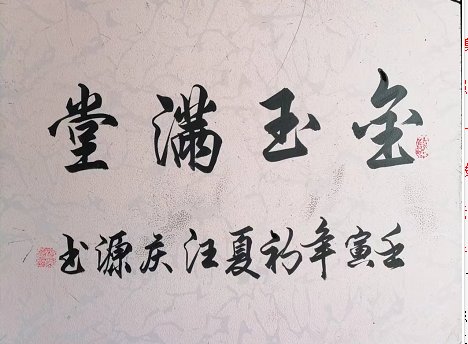 金玉满堂
壬寅年初夏汪庆源书